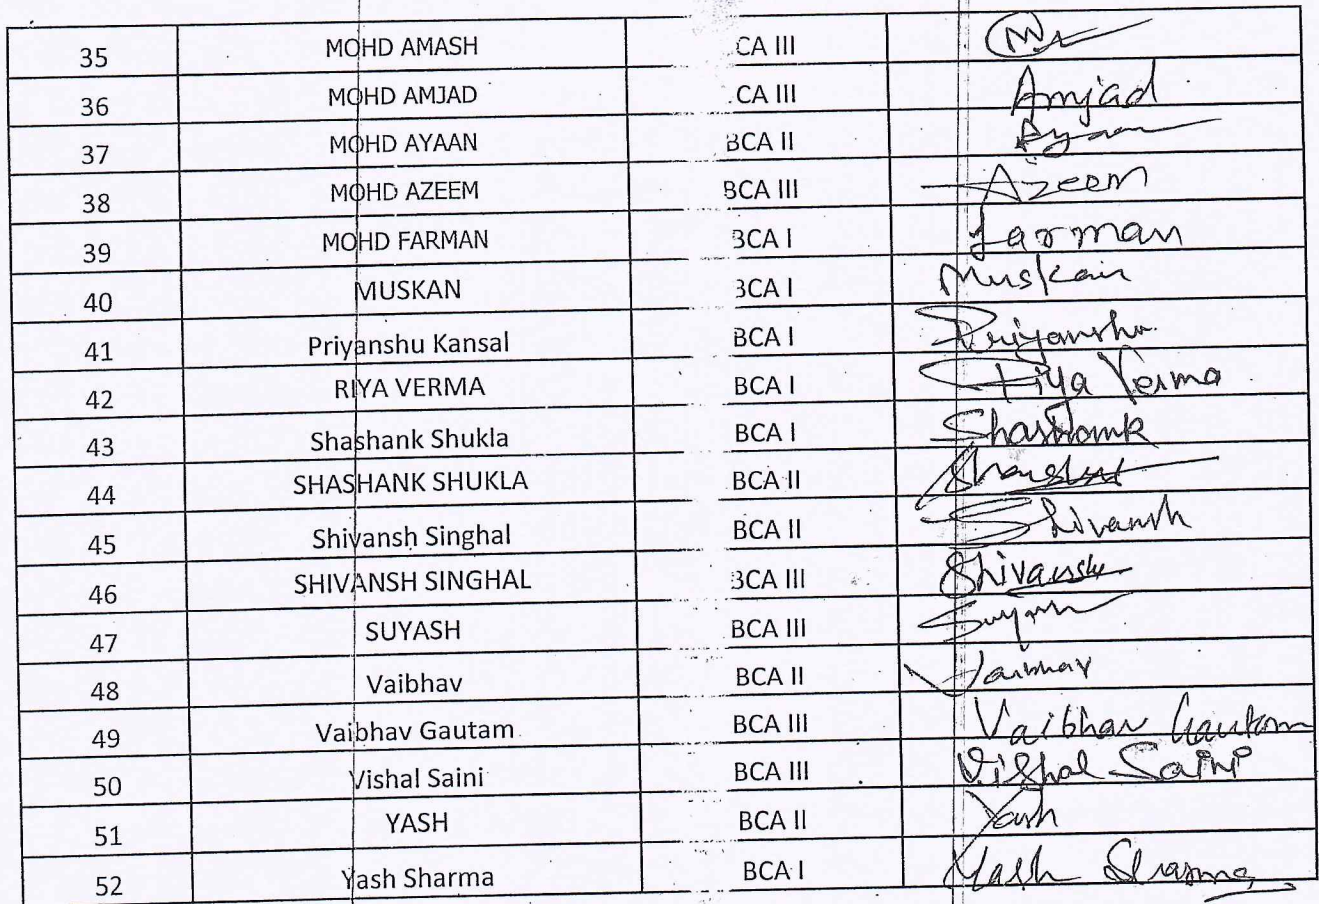 35 MOHD AMASH CA III
36 MOHD AMJAD CA III Amjad
37 MOHD AYAAN BCA II Ayaan
38 MOHD AZEEM BCA III Azeem
39 MOHD FARMAN BCA I Farman
40 MUSKAN BCA I Muskan
41 Priyanshu Kansal BCA I Priyanshu
42 RIYA VERMA BCA I Riya Verma
43 Shashank Shukla BCA I Shashank
44 SHASHANK SHUKLA BCA II
45 Shivansh Singhal BCA II Shivansh
46 SHIVANSH SINGHAL BCA III Shivansh
47 SUYASH BCA III Suyash
48 Vaibhav BCA II Vaibhav
49 Vaibhav Gautam BCA III Vaibhav Gautam
50 Vishal Saini BCA III Vishal Saini
51 YASH BCA II Yash
52 Yash Sharma BCA I Yash Sharma